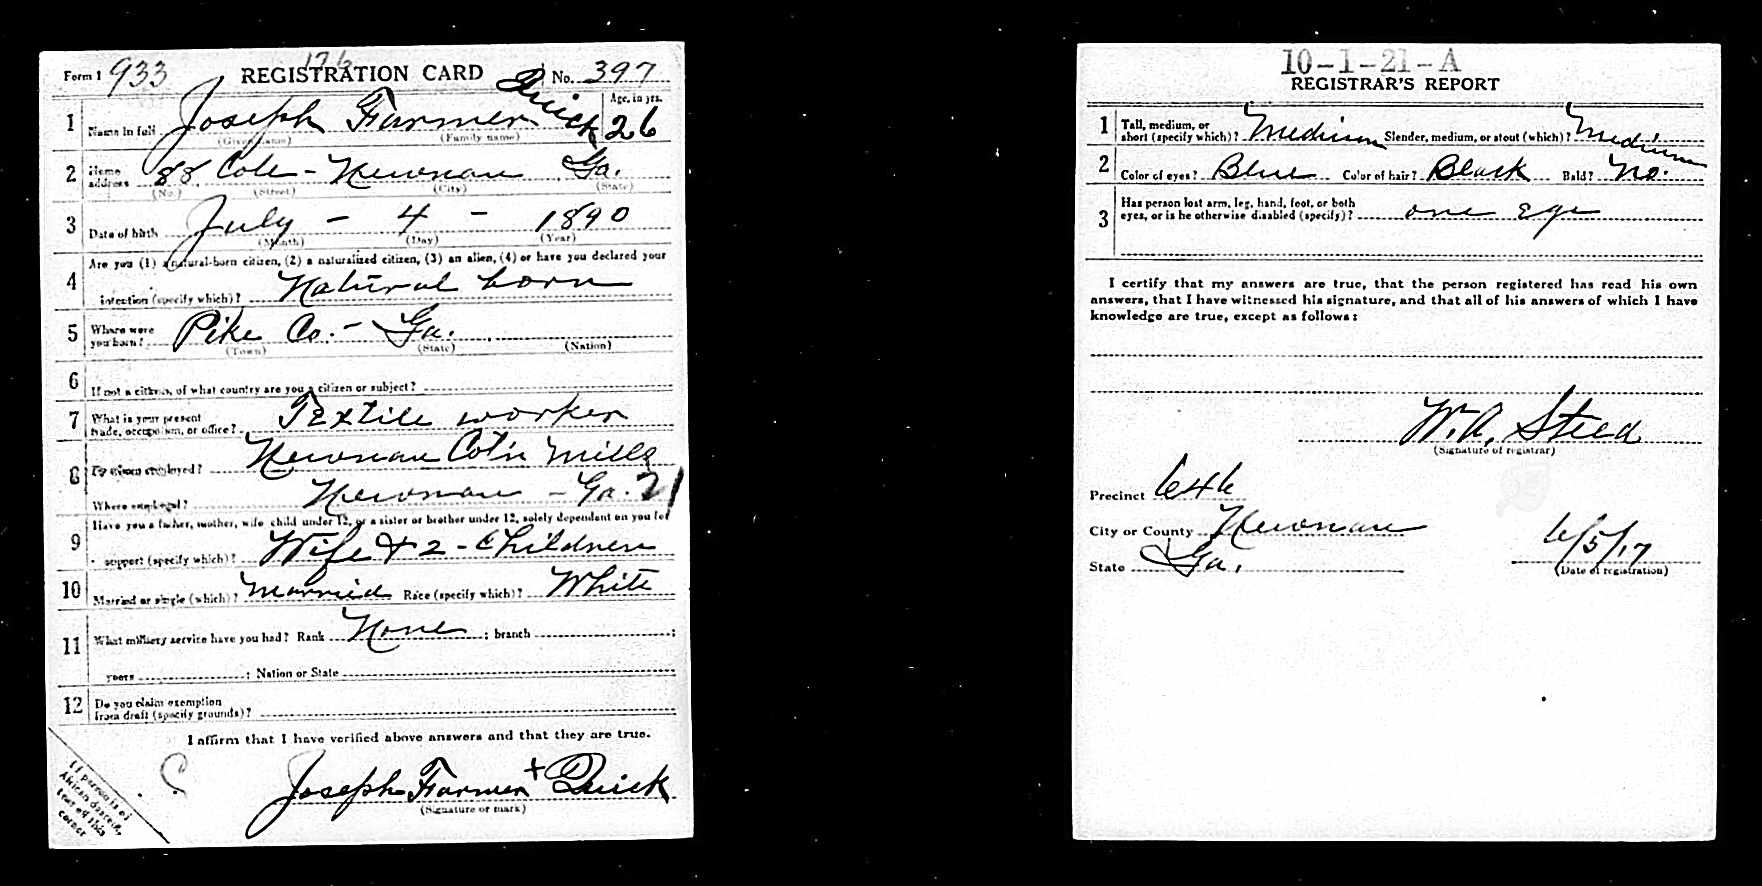 Form 1 933 176 REGISTRATION CARD No. 397
1 Name in full Joseph Farmer Quick Age, in yrs. 26
(Given name) (Family name)
2 Home address 88 Cole - Newnan Ga.
(No.) (Street) (City) (State)
3 Date of birth July - 4 - 1890
(Month) (Day) (Year)
4 Are you (1) a natural-born citizen, (2) a naturalized citizen, (3) an alien, (4) or have you declared your
intention (specify which)? Natural born
5 Where were you born? Pike Co. - Ga.
(Town) (State) (Nation)
6 If not a citizen, of what country are you a citizen or subject?
7 What is your present trade, occupation, or office? Textile worker
8 By whom employed? Newnan Cot'n Mills
Where employed? Newnan - Ga. 21
9 Have you a father, mother, wife, child under 12, or a sister or brother under 12, solely dependent on you for
support (specify which)? Wife & 2 - Children
10 Married or single (which)? Married Race (specify which)? White
11 What military service have you had? Rank None ; branch ;
years ; Nation or State
12 Do you claim exemption
from draft (specify grounds)?
I affirm that I have verified above answers and that they are true.
Joseph Farmer + Quick
(Signature or mark)
If person is of
African descent,
tear off this
corner
10-1-21-A
REGISTRAR'S REPORT
1 Tall, medium, or
short (specify which)? Medium Slender, medium, or stout (which)? Medium
2 Color of eyes? Blue Color of hair? Black Bald? No.
3 Has person lost arm, leg, hand, foot, or both
eyes, or is he otherwise disabled (specify)? one Eye
I certify that my answers are true, that the person registered has read his own
answers, that I have witnessed his signature, and that all of his answers of which I have
knowledge are true, except as follows:
W. A. Steed
(Signature of registrar)
Precinct 646
City or County Newnan
State Ga.
6/5/17
(Date of registration)